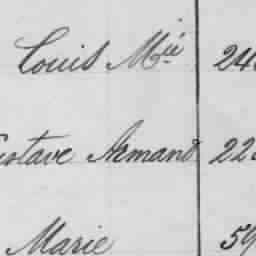 Louis Mie 24
ustave Armand 22
Marie 59